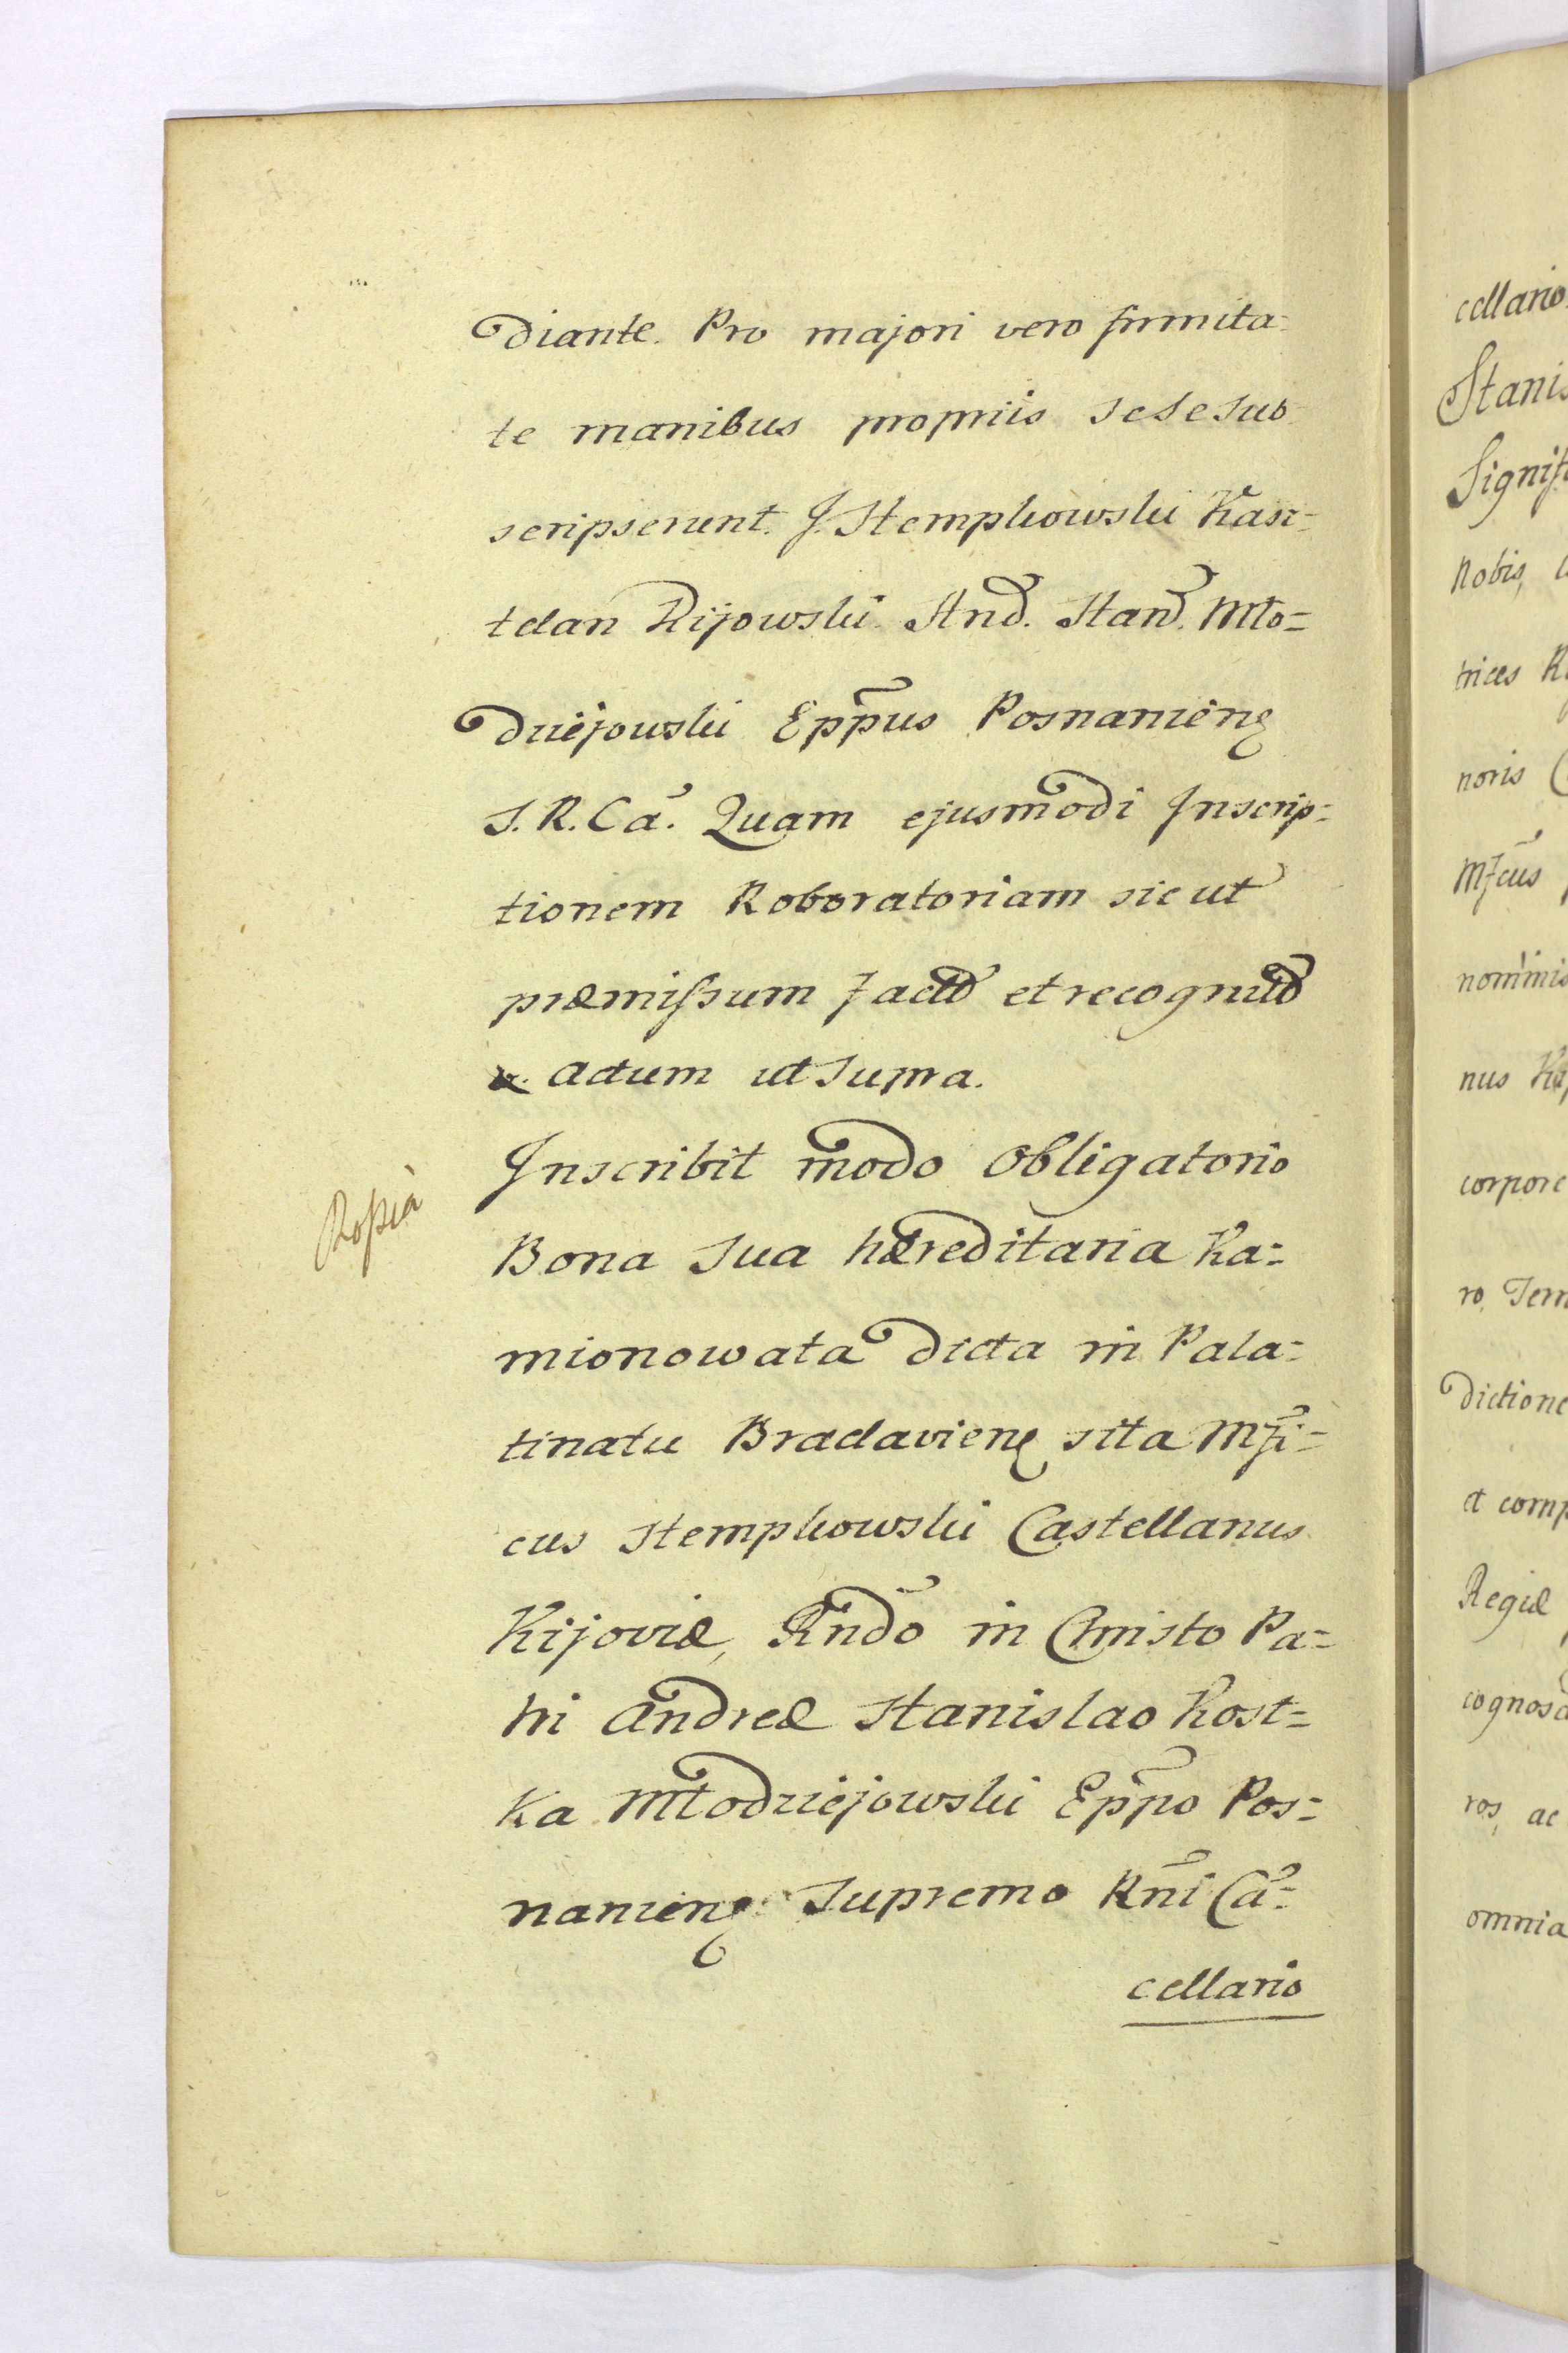 diante. Pro majori vero firmita=
te manibus propriis sese sub
scripserunt. J. Stempkowski Kasz=
telan Kijowski. And. Stan. Mło=
dziejowski Epp̃us Posnanien̄
S. R. Cã. Quam ejusmodi Inscrip=
tionem Roboratoriam sic ut
præmissum factã et recognitã
Actum ut supra.
Ropia
Inscribit modo obligatorio
Bona sua hæreditaria Ka=
mionowata dicta in Pala=
tinatu Braclavien̄ sita Mfi=
cus Stempkowski Castellanus
Kijoviæ, Rñdo in Christo Pa=
tri Andreæ Stanislao Kost=
ka Młodziejowski Epp̃o Pos=
nanien̄ Supremo Rñi Cã=
cellario
cellario
Stanis
Signif
Nobis,
trices R
noris
Mfcus
nominis
nus
corpore
ro, Ter
dictione
et comp
Regiæ
cognos
ros, ac
omnia